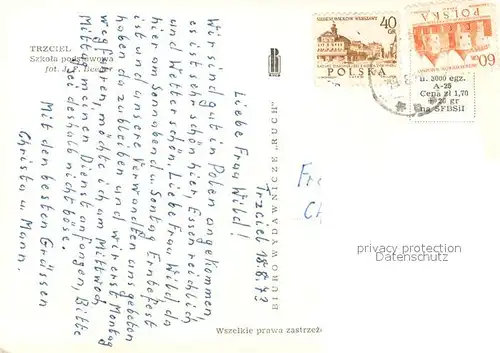 TRZCIEL
Szkoła podstawowa
fot. J.
Trzciel 18.8.73
Liebe Frau Wild!
Wir sind gut in Polen angekommen
es ist sehr schön hier, Essen reichlich
und Wetter schön. Liebe Frau Wild, da
hier am Sonnabend u. Sontag Erntefest
ist und unsere Verwandten uns gebeten
haben da zu bleiben und wir erst Montag
wegfahren, möchte ich am Mittwoch
Mittag meinen Dienst anfangen, Bitte
seid mich nicht böse.
Mit den besten Grüssen
Christa u. Mann.
BIURO WYDAWNICZE „RUCH"
Wszelkie prawa zastrzeże
40
GR
POLSKA
POLSKA
60
n. 3000 egz.
A-25
Cena zł 1,70
+ 20 gr
na SFBSiI
Fr
privacy protection
Datenschutz